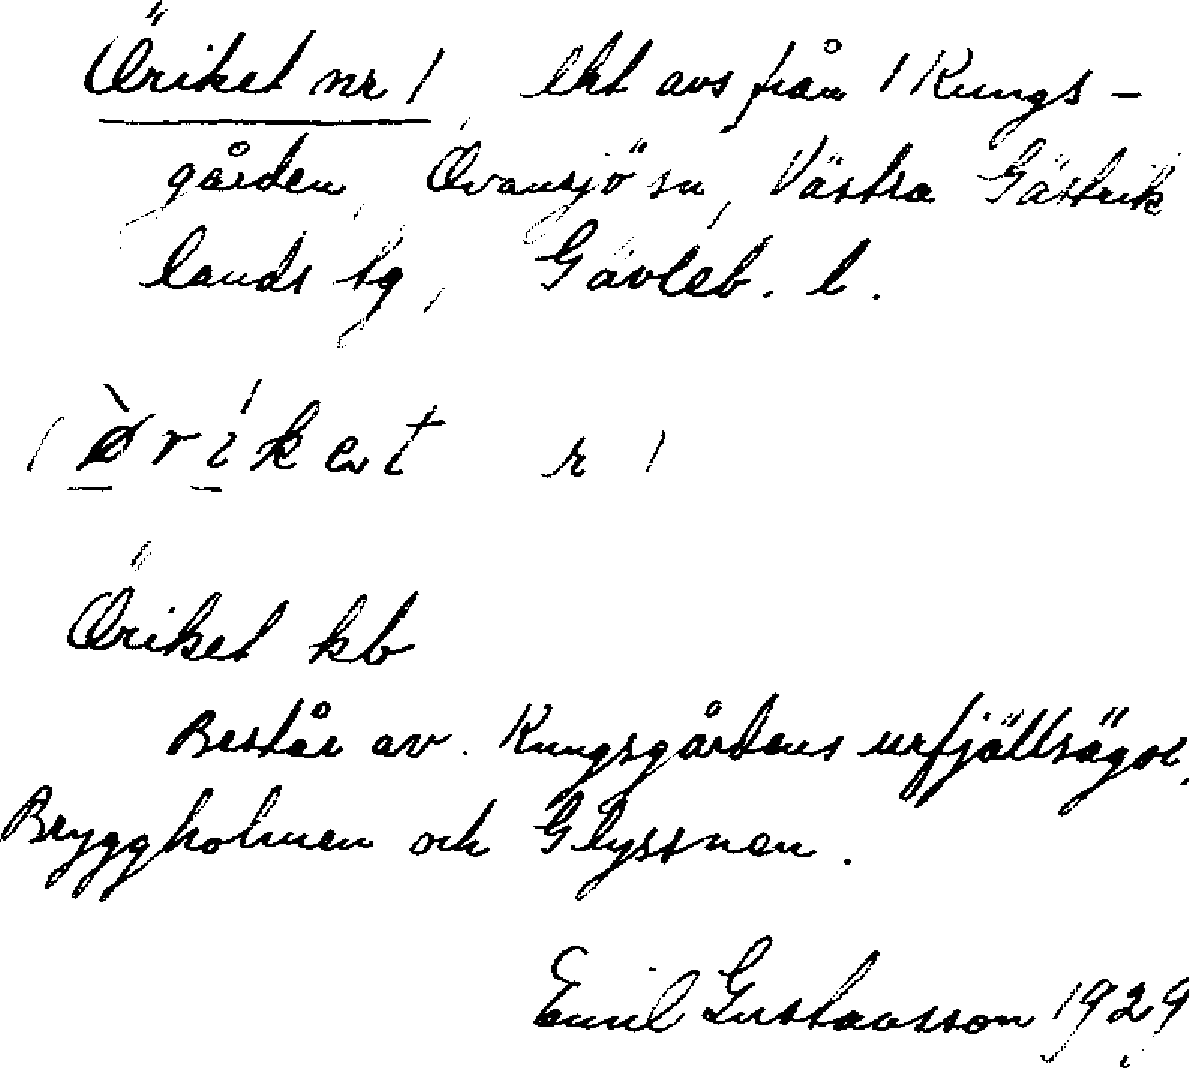 Öriket nr 1, lht avs från 1 Kungs-
gården, Ovansjö sn, Västra Gästrik
lands tg, Gävleb. l.
Öriket kb
Består av Kungsgårdens urfjällsägor,
Bryggholmen och Glyssnan.
Emil Gustavsson 1929